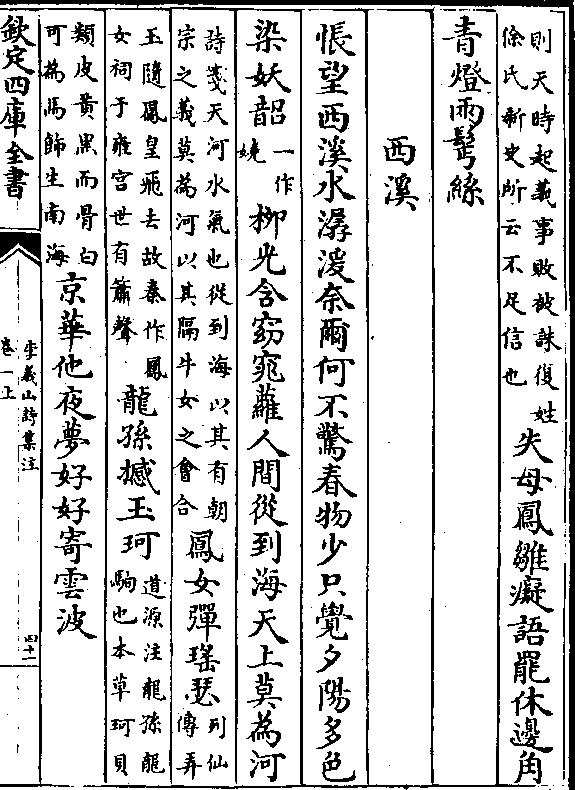 則天時起義事敗被誅復姓
徐氏新史所云不足信也
失母鳳雛癡語罷休邊角
青燈雨鬢絲
西溪
悵望西溪水潺湲奈爾何不驚春物少只覺夕陽多色
染妖韶
一作
嬈
柳光含窈窕蘿人間從到海天上莫為河
詩箋天河水氣也從到海以其有朝
宗之義莫為河以其隔牛女之會合
鳳女彈瑤瑟
列仙
傳弄
玉隨鳳皇飛去故秦作鳳
女祠于雍宮世有簫聲
龍孫撼玉珂
道源注龍孫龍
駒也本草珂貝
類皮黃黑而骨白
可為馬飾生南海
京華他夜夢好好寄雲波
欽定四庫全書
李義山詩集注
卷一上
四十一